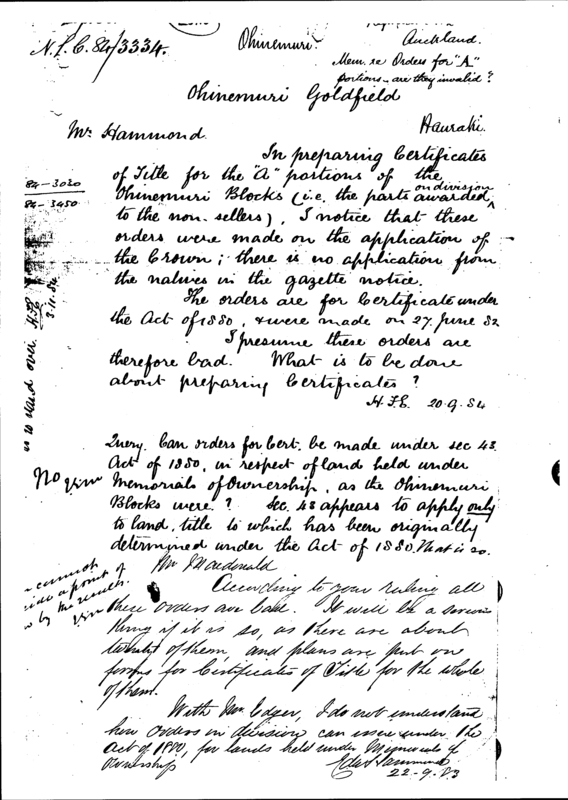 N.L.C. 84/3334.
Ohinemuri.
Auckland.
Mem. re Orders for "A"
portions - are they invalid?
Ohinemuri Goldfield
Hauraki.
Mr. Hammond.
In preparing Certificates
of Title for the "A" portions of the
Ohinemuri Blocks (i.e. the parts awarded, on division
to the non-sellers), I notice that these
orders were made on the application of
the Crown; there is no application from
the natives in the gazette notice.
The orders are for Certificate under
the Act of 1880, & were made on 27 June 82
I presume these orders are
therefore bad. What is to be done
about preparing Certificates?
H.F.E. 20.9.84
84-3020
84-3450
to stand over. H.F.E.
3.11.84
Query. Can orders for Cert. be made under sec 43.
Act of 1880, in respect of land held under
Memorials of Ownership, as the Ohinemuri
Blocks were? Sec. 43 appears to apply only
to land, title to which has been originally
determined under the Act of 1880. That is so.
No
cannot
a point of
by the
Mr Macdonald
According to your ruling all
these orders are bad. It will be a serious
thing if it is so, as there are about
twenty of them, and plans are put on
forms for Certificates of Title for the whole
of them.
With Mr Edger, I do not understand
how orders in division can issue under the
Act of 1880, for lands held under Memorials of
Ownership
Edw Hammond
22-9-83